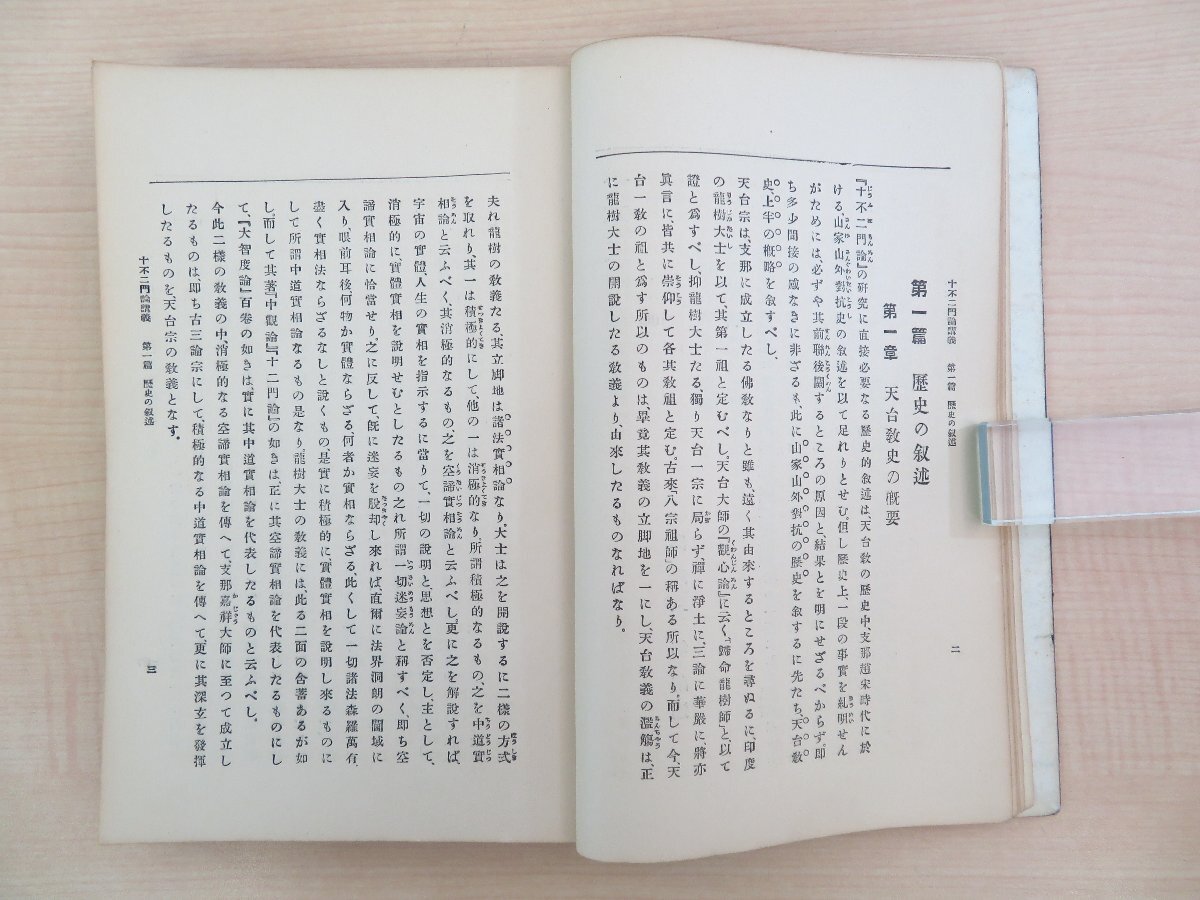 十不二門論講義　第一篇　歷史の叙述
二
第一篇　歷史の叙述
第一章　天台敎史の概要
『十不二門論』の硏究に直接必要なる歷史的叙述は、天台敎の歷史中、支那趙宋時代に於
ける、山家山外對抗史の叙述を以て足れりとせむ。但し歷史上、一段の事實を糺明せん
がためには、必ずや其前聯後關するところの原因と、結果とを明にせざるべからず。卽
ち多少間接の感なきに非ざるも、此に山家山外對抗の歷史を叙するに先たち、天台敎
史、上半の概略を叙すべし、
天台宗は、支那に成立したる佛敎なりと雖も、遠く其由來するところを尋ぬるに、印度
の龍樹大士を以て、其第一祖と定むべし。天台大師の『觀心論』に云く、「歸命龍樹師」と、以て
證と爲すべし、抑龍樹大士たる、獨り天台一宗に局らず、禪に淨土に、三論に華嚴に、將亦
眞言に、皆共に崇仰して各其敎祖と定む。古來「八宗祖師」の稱ある所以なり。而して今、天
台一敎の祖と爲す所以のものは、畢竟其敎義の立脚地を一にし、天台敎義の濫觴は、正
に龍樹大士の開說したる敎義より、由來したるものなればなり。
夫れ龍樹の敎義たる、其立脚地は諸法實相論なり。大士は之を開說するに二樣の方式
を取れり、其一は積極的にして、他の一は消極的なり、所謂積極的なるもの、之を中道實
相論と云ふべく、其消極的なるもの、之を空諦實相論と云ふべし。更に之を解說すれば、
宇宙の實體、人生の實相を指示するに當りて、一切の說明と、思想とを否定し、主として、
消極的に、實體實相を說明せむとしたるもの之れ所謂一切迷妄論と稱すべく、卽ち空
諦實相論に恰當せり。之に反して、旣に迷妄を脫却し來れば、直爾に法界洞朗の閫域に
入り、眼前耳後何物か實體ならざる、何者か實相ならざる、此くして一切諸法森羅萬有、
盡く實相法ならざるなしと說くもの、是實に積極的に、實體實相を說明し來るものに
して所謂中道實相論なるもの是なり。龍樹大士の敎義には此る二面の含蓄あるが如
し。而して其著『中觀論』『十二門論』の如きは、正に其空諦實相論を代表したるものにし
て、『大智度論』百卷の如きは、實に其中道實相論を代表したるものと云ふべし。
今此二樣の敎義の中、消極的なる空諦實相論を傳へて、支那嘉祥大師に至つて成立し
たるものは、卽ち古三論宗にして、積極的なる中道實相論を傳へて、更に其深玄を發揮
したるものを、天台宗の敎義となす。
十不二門論講義　第一篇　歷史の叙述
三